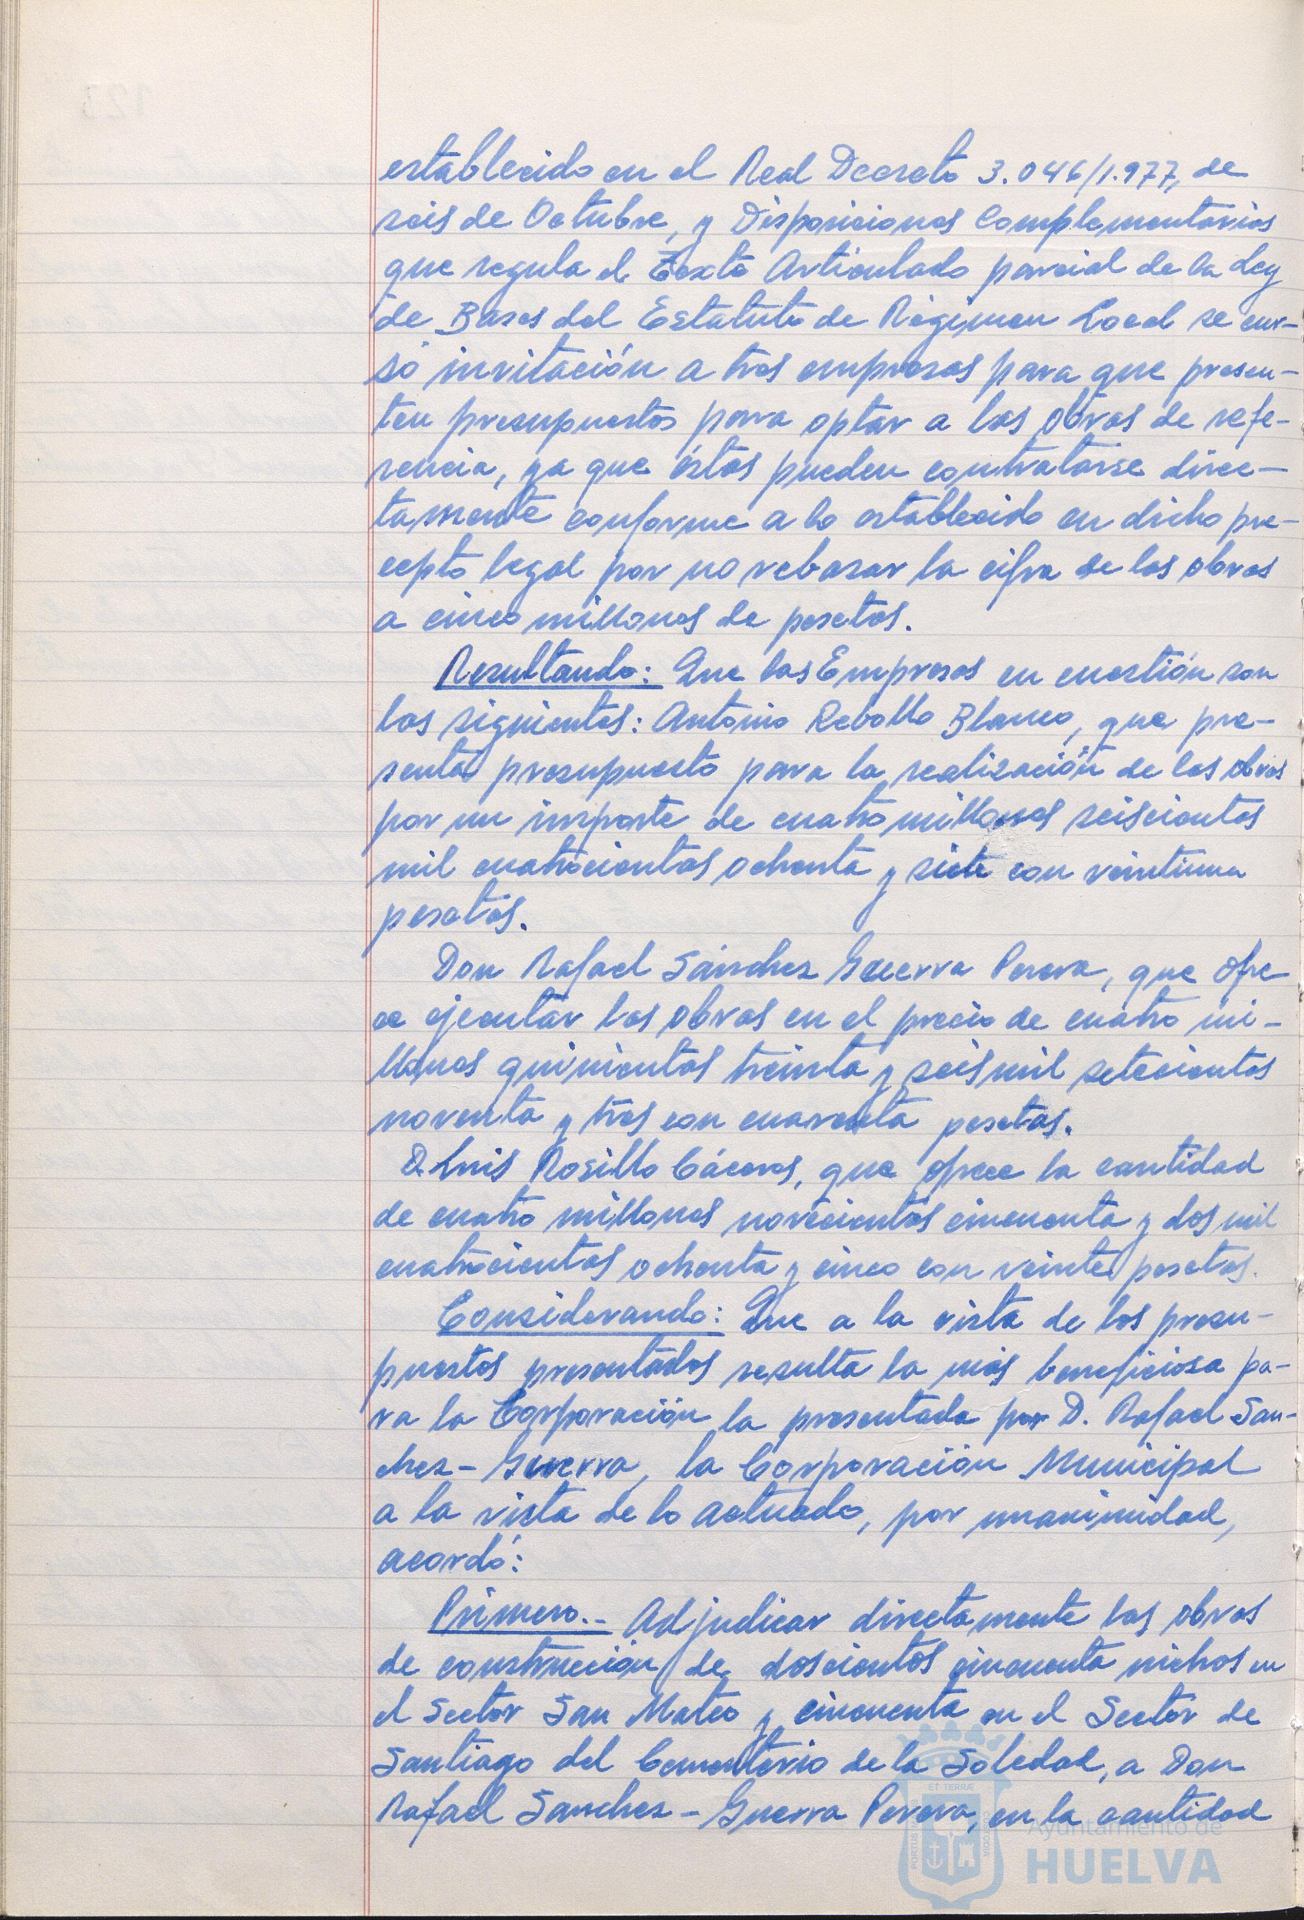 establecido en el Real Decreto 3.046/1.977, de
seis de Octubre, y Disposiciones Complementarias
que regula el Texto Articulado parcial de la Ley
de Bases del Estatuto de Régimen Local se cur-
só invitación a tres empresas para que presen-
ten presupuestos para optar a las obras de refe-
rencia, ya que éstas pueden contratarse direc-
tamente conforme a lo establecido en dicho pre-
cepto legal por no rebasar la cifra de las obras
a cinco millones de pesetas.
Resultando: Que las Empresas en cuestión son
las siguientes: Antonio Rebollo Blanco, que pre-
senta presupuesto para la realización de las obras
por un importe de cuatro millones seiscientas
mil cuatrocientas ochenta y siete con veintiuna
pesetas.
Don Rafael Sánchez Guerra Perera, que ofre
ce ejecutar las obras en el precio de cuatro mi-
llones quinientas treinta y seis mil setecientas
noventa y tres con cuarenta pesetas.
D. Luis Rosillo Cáceres, que ofrece la cantidad
de cuatro millones novecientas cincuenta y dos mil
cuatrocientas ochenta y cinco con veinte pesetas.
Considerando: Que a la vista de los presu-
puestos presentados resulta la más beneficiosa pa-
ra la Corporación la presentada por D. Rafael San-
chez-Guerra, la Corporación Municipal
a la vista de lo actuado, por unanimidad,
acordó:
Primero.- Adjudicar directamente las obras
de construcción de doscientos cincuenta nichos en
el Sector San Mateo y cincuenta en el Sector de
Santiago del Cementerio de la Soledad, a Don
Rafael Sanchez-Guerra Perera, en la cantidad
Ayuntamiento de
HUELVA